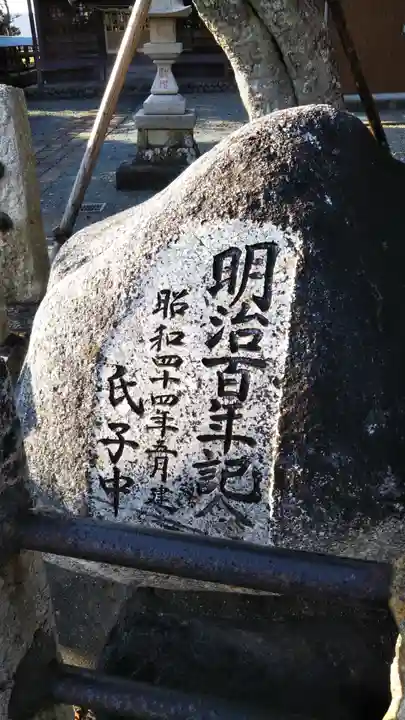 明治百年記念
昭和四十四年五月建之
氏子中